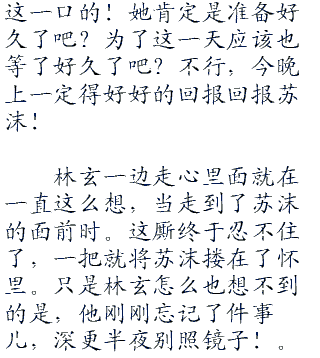 这一口的！她肯定是准备好
久了吧？为了这一天应该也
等了好久了吧？不行，今晚
上一定得好好的回报回报苏
沫！
林玄一边走心里面就在
一直这么想，当走到了苏沫
的面前时。这厮终于忍不住
了，一把就将苏沫搂在了怀
里。只是林玄怎么也想不到
的是，他刚刚忘记了件事
儿，深更半夜别照镜子！。